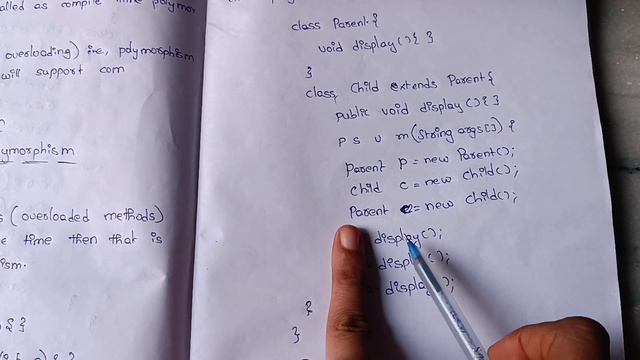 alled as compile time polymor
overloading) i.e, polymorphism
will support com
ymorphism
s (overloaded methods)
e time then that is
ism.
) { }
class Parent {
void display() { }
}
class Child extends Parent {
public void display() { }
P S V m(String args[]) {
Parent p = new Parent();
Child c = new Child();
Parent = new Child();
display();
display();
display();
}
}